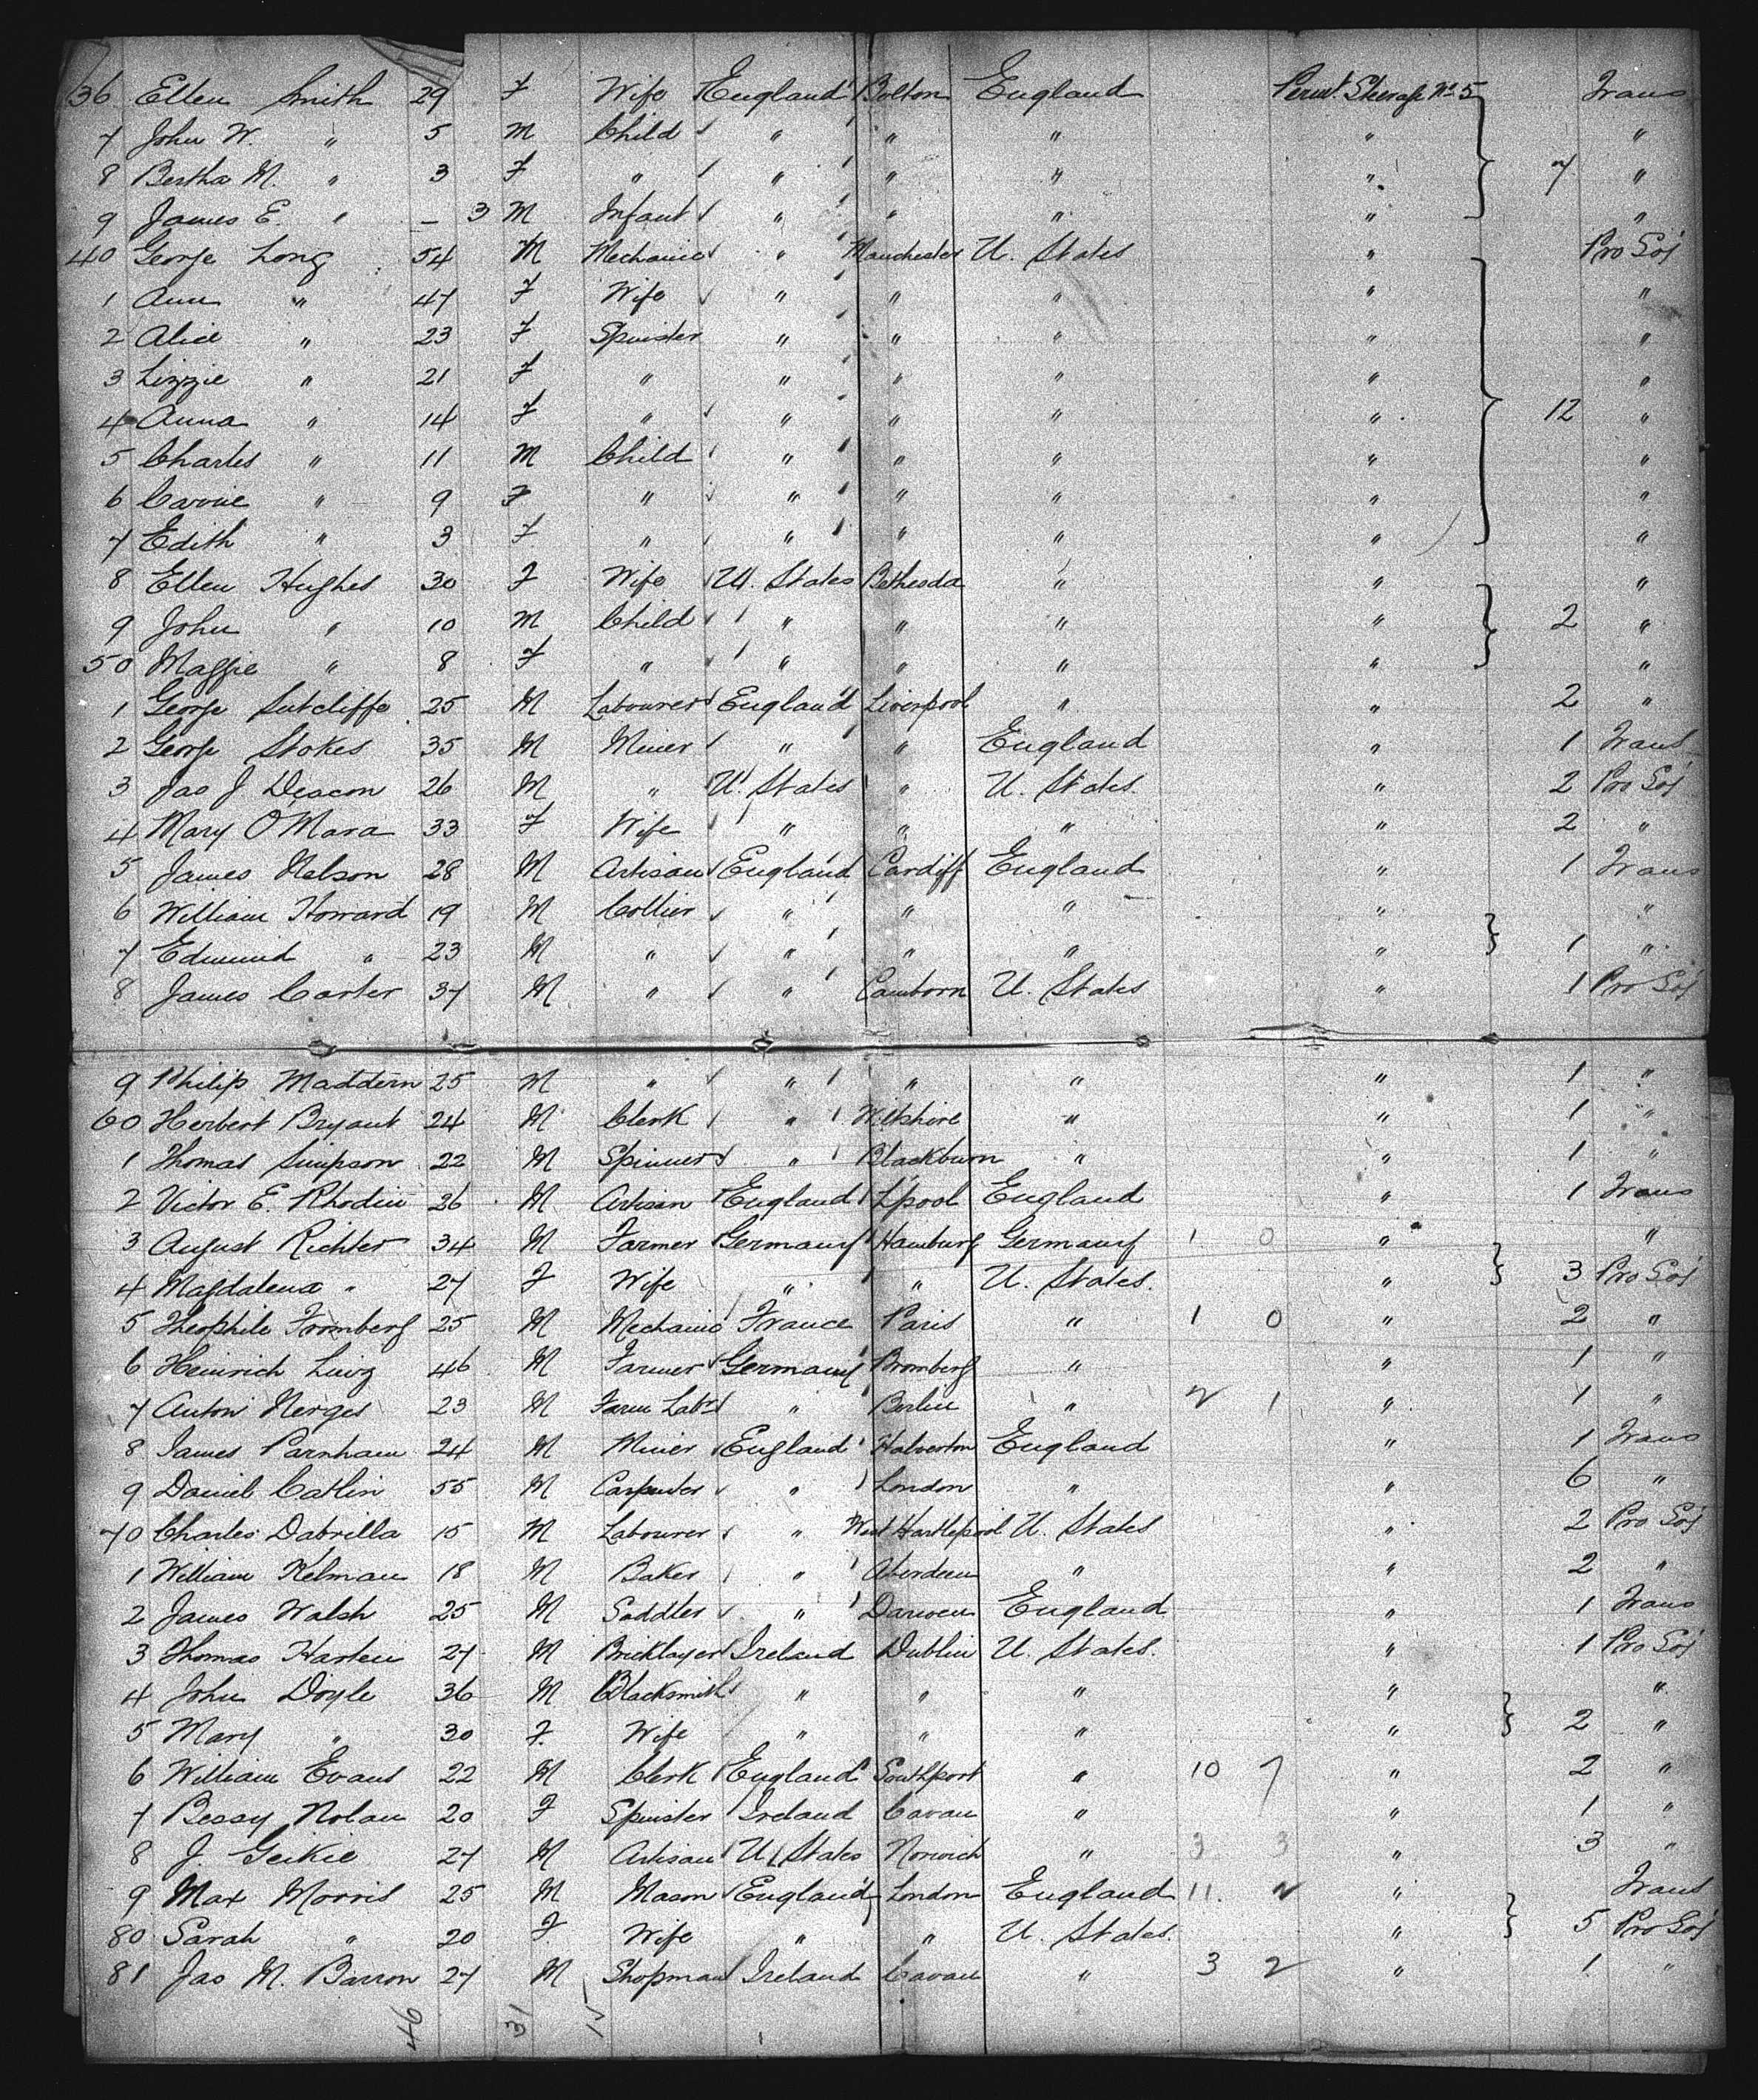 36 Ellen Smith 29 F Wife England Bolton England Perm't Steerage No 5 Trans
7 John W. " 5 M Child " " " " "
8 Bertha M. " 3 F " " " " " 7 "
9 James E. " — 3 M Infant " " " " "
40 George Long 54 M Mechanic " Manchester U. States " Pro Soj
1 Ann " 47 F Wife " " " " "
2 Alice " 23 F Spinster " " " " "
3 Lizzie " 21 F " " " " " "
4 Anna " 14 F " " " " " 12 "
5 Charles " 11 M Child " " " " "
6 Carrie " 9 F " " " " " "
7 Edith " 3 F " " " " " "
8 Ellen Hughes 30 F Wife U. States Bethesda " " "
9 John " 10 M Child " " " " 2 "
50 Maggie " 8 F " " " " " "
1 George Sutcliffe 25 M Labourer England Liverpool " " 2 "
2 George Stokes 35 M Miner " " England " 1 Trans
3 Jas J Deacon 26 M " U. States " U. States. " 2 Pro Soj
4 Mary O'Mara 33 F Wife " " " " 2 "
5 James Nelson 28 M Artisan England Cardiff England " 1 Trans
6 William Howard 19 M Collier " " " " "
7 Edmund " 23 M " " " " " 1 "
8 James Carter 37 M " " Camborn U. States " 1 Pro Soj
9 Philip Maddern 25 M " " " " " 1 "
60 Herbert Bryant 24 M Clerk " Wiltshire " " 1 "
1 Thomas Simpson 22 M Spinner " Blackburn " " 1 "
2 Victor E. Rhodin 26 M Artisan England L'pool England " 1 Trans
3 August Richter 34 M Farmer Germany Hamburg Germany 1 0 " "
4 Magdalena " 27 F Wife " " U. States. " 3 Pro Soj
5 Theophile Fromberg 25 M Mechanic France Paris " 1 0 " 2 "
6 Heinrich 46 M Farmer Germany Bromberg " " 1 "
7 Anton Nerges 23 M Farm Labr " Berlin " 2 1 " 1 "
8 James Parnham 24 M Miner England Halverton England " 1 Trans
9 Daniel Catlin 55 M Carpenter " London " " 6 "
70 Charles Dabrella 15 M Labourer " West Hartlepool U. States " 2 Pro Soj
1 William Kelman 18 M Baker " Aberdeen " " 2 "
2 James Walsh 25 M Saddler " Darwen England " 1 Trans
3 Thomas Harten 27 M Bricklayer Ireland Dublin U. States. " 1 Pro Soj
4 John Doyle 36 M Blacksmith " " " " "
5 Mary " 30 F. Wife " " " " 2 "
6 William Evans 22 M Clerk England Southport " 10 7 " 2 "
7 Bessy Nolan 20 F Spinster Ireland Cavan " " 1 "
8 J. Geikie 27 M Artisan U. States Norwich " 3 3 " 3 "
9 Max Morris 25 M Mason England London England 11. 2 " Trans
80 Sarah " 20 F. Wife " " U. States. " 5 Pro Soj
81 Jas M. Barron 27 M Shopman Ireland Cavan " 3 2 " 1 "
46 31